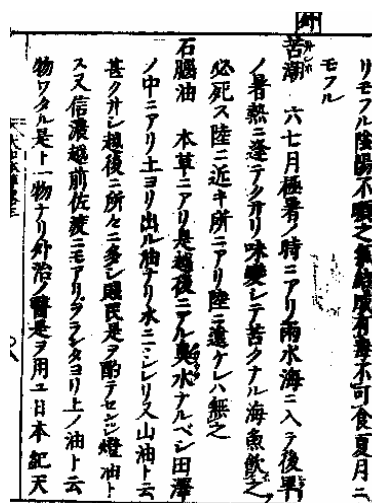 リモフル陰陽不順之氣結成有毒不可食夏月ニ
モフル
苦潮 六七月極暑ノ時ニアリ雨水海ニ入テ後旱
ノ暑熱ニ逢テクサリ味變シテ苦クナル海魚飲之
必死ス陸ニ近キ所ニアリ陸ニ遠ケレハ無之
石腦油 本草ニアリ是越後ニアル臭水ナルベシ田澤
ノ中ニアリ土ヨリ出ル油ナリ水ニマシレリ又山油ト云
甚クサシ越後ニ所々ニ多シ賤民是ヲ酌テセンシ燈油ト
ス又信濃越前佐渡ニモアリヲランタヨリ上ノ油ト云
物ワタル是ト一物ナリ外治ノ醫是ヲ用ユ日本紀天